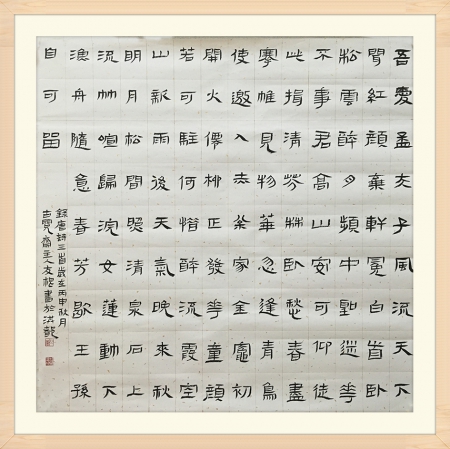 吾愛孟夫子風流天下
聞紅顏棄軒冕白首卧
松雲醉月頻中聖迷花
不事君高山安可仰徒
此揖清芬林卧愁春盡
搴帷見物華忽逢青鳥
使邀入赤松家金竈初
開火僊桃正發花童顏
若可駐何惜醉流霞空
山新雨後天氣晚來秋
明月松間照清泉石上
流竹喧歸浣女蓮動下
漁舟隨意春芳歇王孫
自可留
錄唐詩三首歲在丙申秋月
齋主人友書於洪